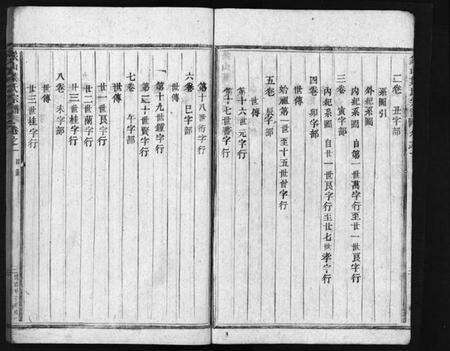 二卷 丑字部
系圖引
外紀系圖
內紀系圖 自第一世萬字行至廿一世良字行
三卷 寅字部
內紀系圖 自廿一世良字行至廿七世孝字行
四卷 卯字部
始遷第一世至十五世曾字行
世傳
五卷 辰字部
世傳
第十六世元字行
第十七世
第十八世衍字行
六卷 巳字部
世傳
第十九世鐘字行
第二十世賢字行
七卷 午字部
世傳
廿一世良字行
廿二世蘭字行
廿三世桂字行
八卷 未字部
世傳
廿三世桂字行